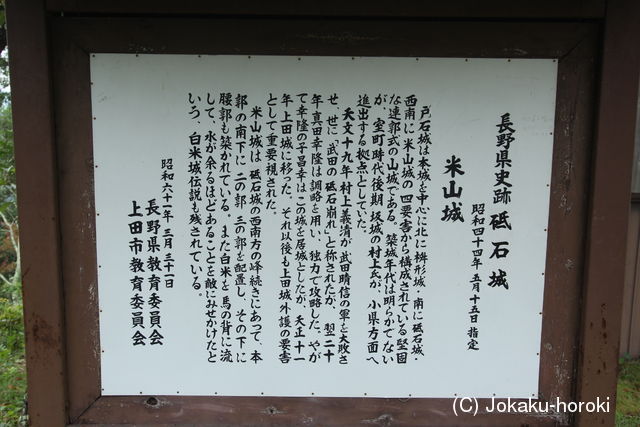 長野県史跡 砥石城
昭和四十四年 五月十五日 指定
米山城
戸石城は本城を中心に北に枡形城・南に砥石城・
西南に米山城の四要害から構成されている堅固
な連郭式の山城である。築城年代は明らかでない
が、室町時代後期坂城の村上氏が、小県方面へ
進出する拠点としていた。
天文十九年村上義清が武田晴信の軍を大敗さ
せ、世に「武田の砥石崩れ」と称されたが、翌二十
年真田幸隆は調略を用い、独力で攻略した。やが
て幸隆の子昌幸はこの城を居城としたが、天正十一
年上田城に移った。それ以後も上田城外護の要害
として重要視された。
米山城は 砥石城の西南方の峰続きにあって、本
郭の南下に二の郭 三の郭を配置し、その下に
腰郭も築かれている。また白米を馬の背に流
して、水が余るほどあることを敵にみせかけたと
いう、白米城伝説も残されている。
昭和六十一年 三月 三十一日
長野県教育委員会
上田市教育委員会
(C) Jokaku-horoki